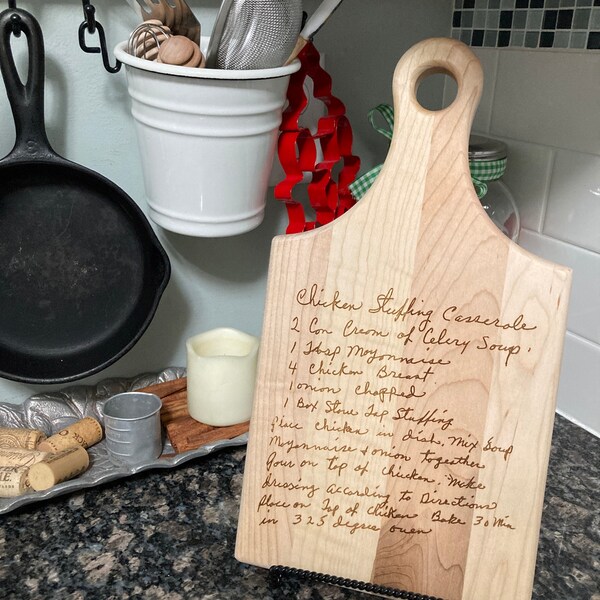 Chicken Stuffing Casserole
2 Can Cream of Celery Soup
1 Tbsp Mayonnaise
4 Chicken Breast
1 onion chopped
1 Box Stove Top Stuffing
Place chicken in dish, Mix Soup
Mayonnaise & onion together
Pour on top of chicken. Make
dressing according to Directions
Place on Top of chicken Bake 30 Min
in 325 degree oven